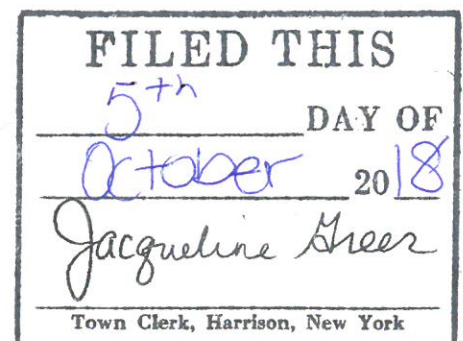 FILED THIS
5th DAY OF
October 2018
Jacqueline Greer
Town Clerk, Harrison, New York